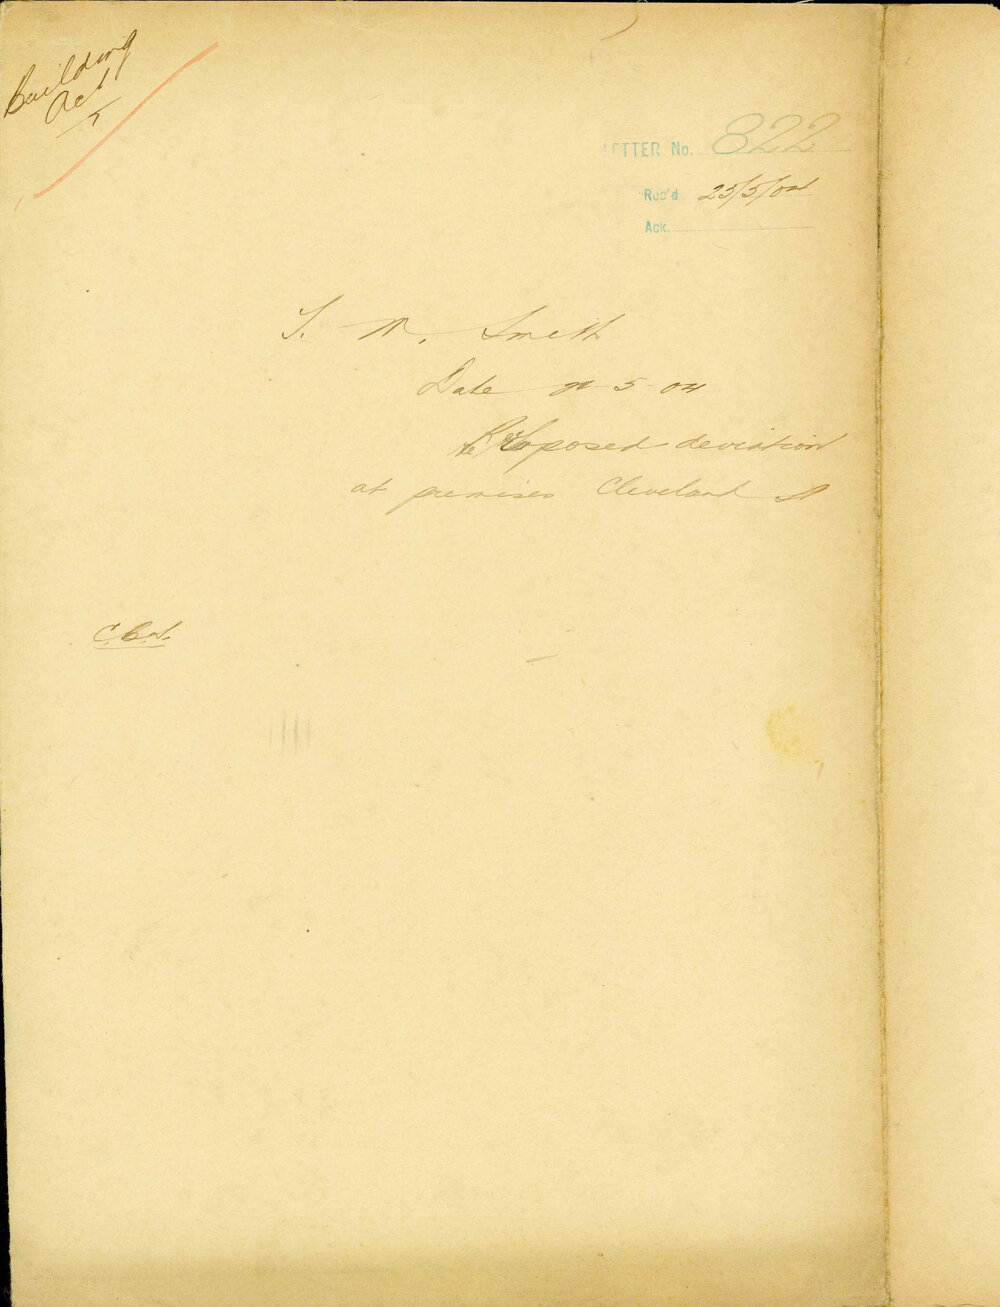 Building
Act
LETTER No. 822
Rec'd 25/5/04
Ack.
T. M. Smith
Date 5-04
Re Proposed deviation
at premises Cleveland St